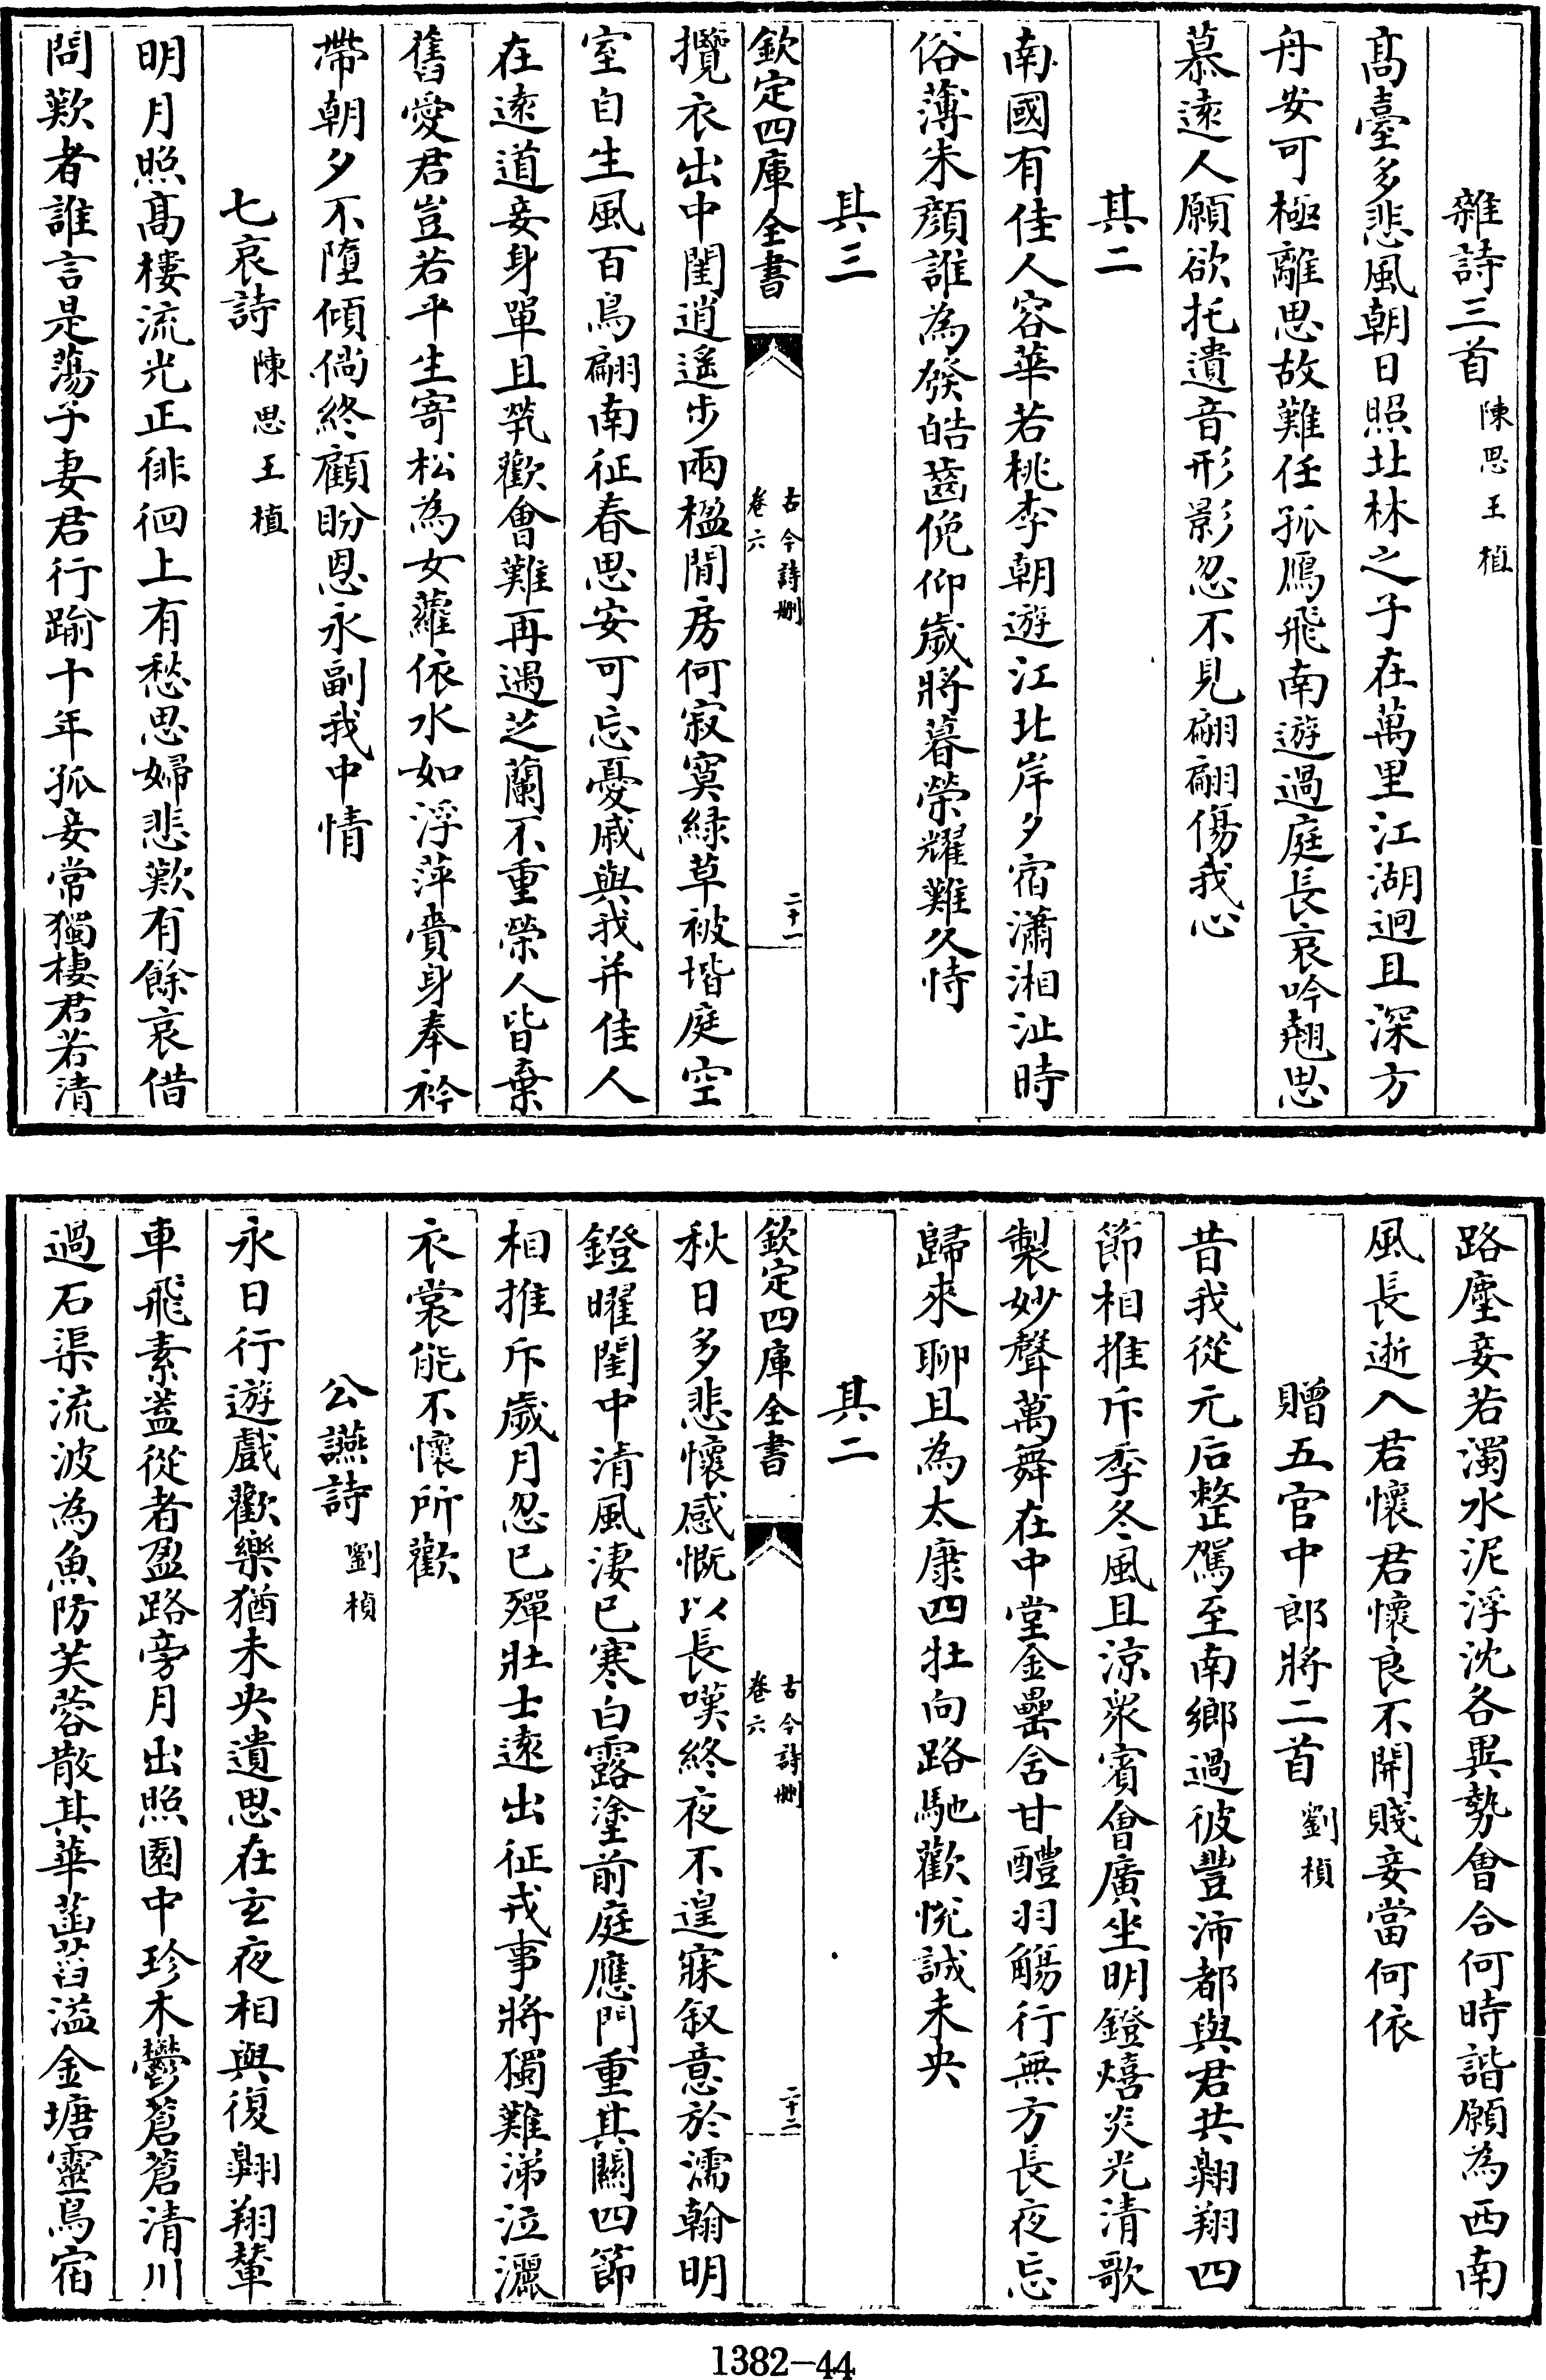 雜詩三首 陳思王植
髙臺多悲風朝日照北林之子在萬里江湖迥且深方
舟安可極離思故難任孤鴈飛南遊過庭長哀吟翹思
慕遠人願欲托遺音形影忽不見翩翩傷我心
其二
南國有佳人容華若桃李朝遊江北岸夕宿瀟湘沚時
俗薄朱顔誰為發皓齒俛仰歲將暮榮耀難久恃
其三
欽定四庫全書 古今詩刪 卷六 二十一
攬衣出中閨逍遙步兩楹閒房何寂寞綠草被堦庭空
室自生風百鳥翩南征春思安可忘憂戚與我并佳人
在遠道妾身單且煢歡會難再遇芝蘭不重榮人皆棄
舊愛君豈若平生寄松為女蘿依水如浮萍賫身奉衿
帶朝夕不墮傾倘終顧盼恩永副我中情
七哀詩 陳思王植
明月照髙樓流光正徘徊上有愁思婦悲歎有餘哀借
問歎者誰言是蕩子妻君行踰十年孤妾常獨棲君若清
路塵妾若濁水泥浮沈各異勢會合何時諧願為西南
風長逝入君懷君懷良不開賤妾當何依
贈五官中郎將二首 劉楨
昔我從元后整駕至南鄉過彼豐沛都與君共翱翔四
節相推斥季冬風且涼衆賓會廣坐明鐙熺炎光清歌
製妙聲萬舞在中堂金罍含甘醴羽觴行無方長夜忘
歸來聊且為太康四牡向路馳歡悅誠未央
其二
欽定四庫全書 古今詩刪 卷六 二十二
秋日多悲懷感慨以長嘆終夜不遑寐叙意於濡翰明
鐙曜閨中清風淒已寒白露塗前庭應門重其關四節
相推斥歲月忽已殫壯士遠出征戎事將獨難涕泣灑
衣裳能不懷所歡
公讌詩 劉楨
永日行遊戲歡樂猶未央遺思在玄夜相與復翱翔輦
車飛素蓋從者盈路旁月出照園中珍木鬱蒼蒼清川
過石渠流波為魚防芙蓉散其華菡萏溢金塘靈鳥宿
1382-44